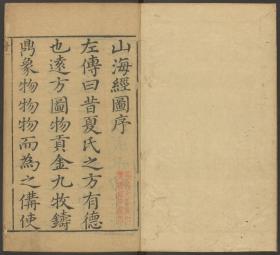 山海經圖序
左傳曰昔夏氏之方有德
也逺方圖物貢金九牧鑄
鼎象物物物而為之備使